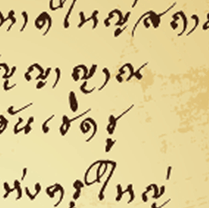 หาดใหญ่ สถา
ญญาญาณ
อันเชิดชู
แห่งครูใหญ่